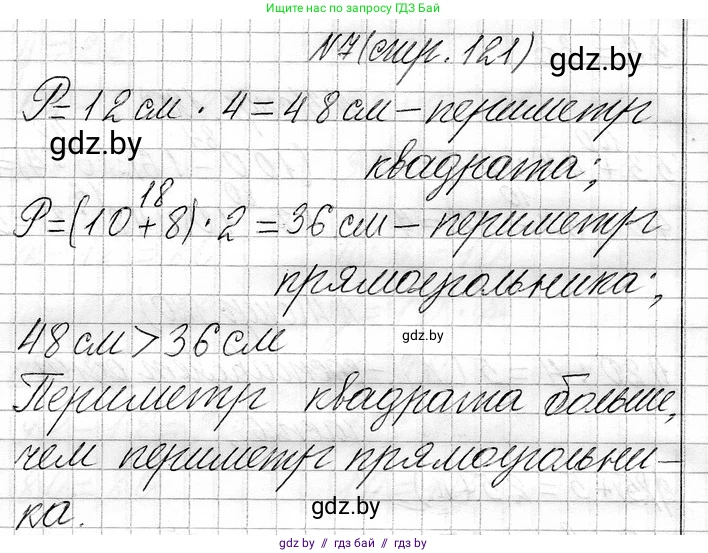 Ищите нас по запросу ГДЗ Бай
№7 (стр. 121) gdz.by
P=12см · 4=48см – периметр
gdz.by
квадрата;
18
P=(10+8)·2=36см – периметр
прямоугольника;
48см>36см gdz.by
Периметр квадрата больше,
чем периметр прямоугольни-
ка. gdz.by
gdz.by // гдз бай // gdz.by